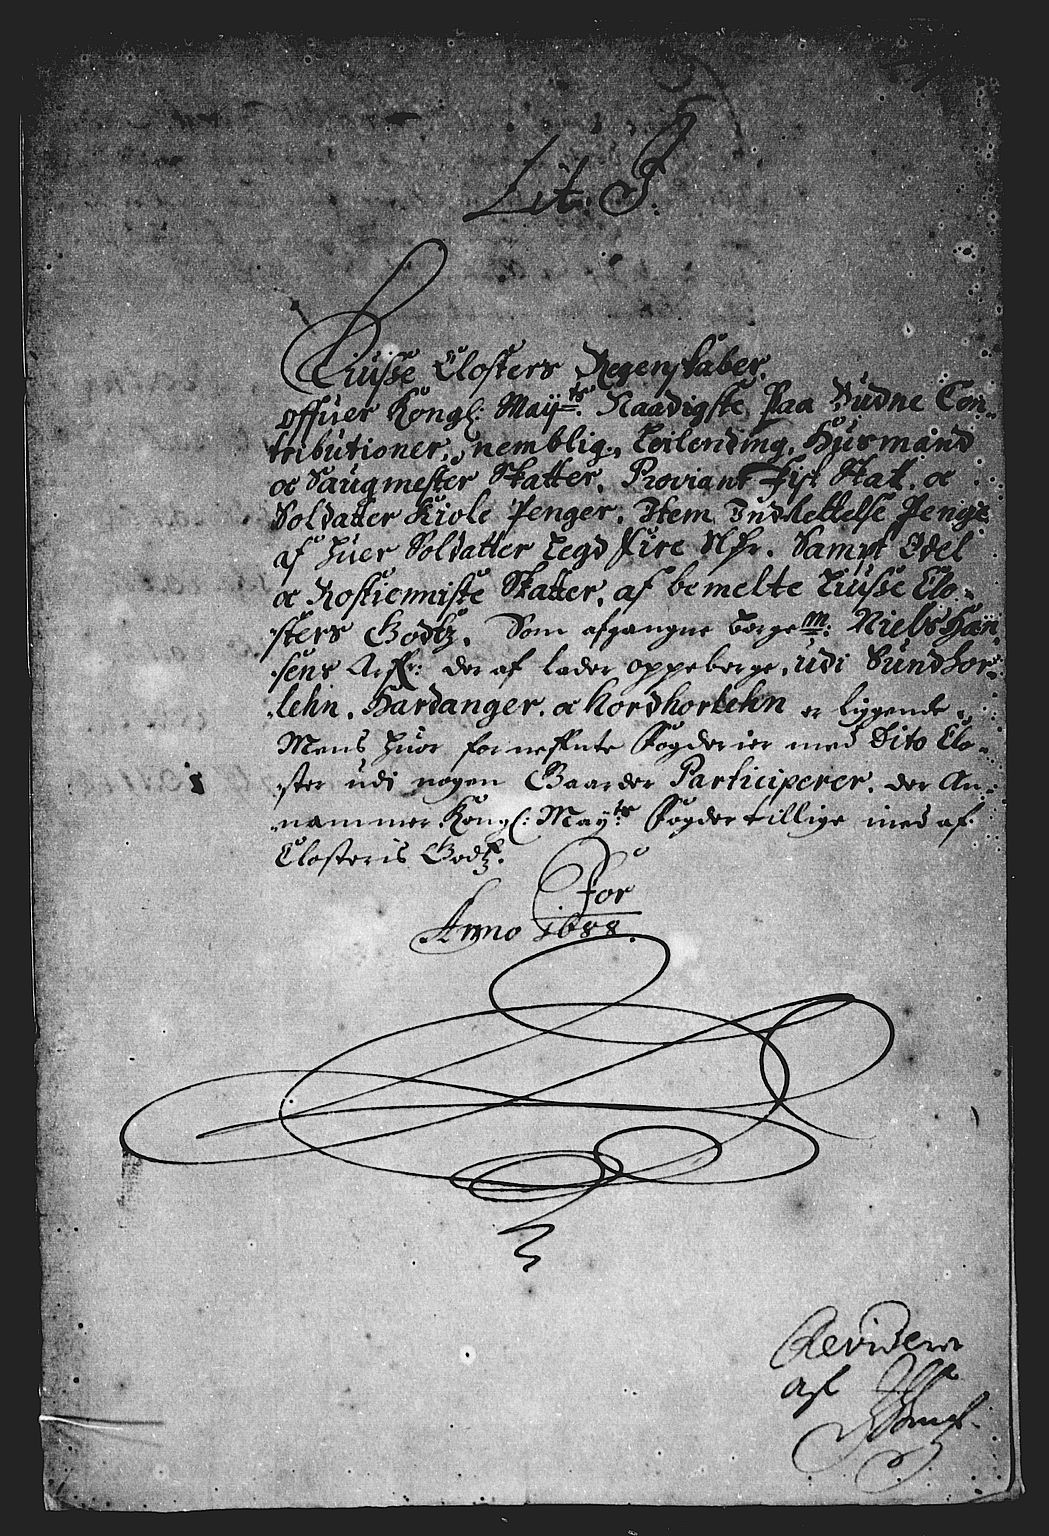 Lit: J.
Liusse Closters Regenskaber.
offuer Kongl: May:ts Naadigste Paa Budne Con-
tributioner, nemblig, Leilending, Huusmand
oc Saugmester Skatter, Proviant Fisk Skat. oc
Soldatter Kiole Penger, Item Indrettelse Peng:
af huer Soldatter Legd fire Rdr. Sampt Odel
oc Rostienniste Skatter, af bemelte Liusse Clo-
sters Godtz. Som afgangne Borgem: Niels Han-
sens Arf: der af lader oppeberge, udi Sundhor-
lehn, Hardanger, oc Nordhorlehn er liggende.
Mens huor forneffnte Fogderier med Dito Clo-
ster udi nogen Gaarder Participerer, der An-
nammer Kongl: May:ts Fogder tillige med af
Closteris Godtz.
For
Anno 1688.
Revideret
aff